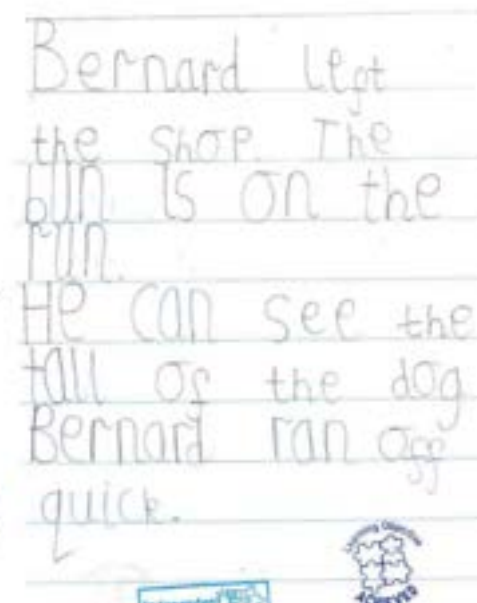 Bernard left
the shop. The
bun is on the
run.
He can see the
tall of the dog
Bernard ran off
quick.
Learning Objective
ACHIEVED